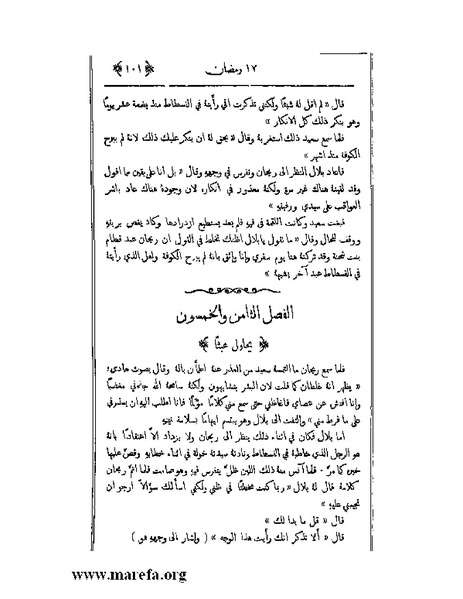 ﴿ ١٠١ ﴾ ١٧ رمضان
قال « لم اقل له شيئًا ولكنني تذكرت اني رأيتهُ في الفسطاط منذ بضعة عشر يومًا
وهو ينكر ذلك كل الانكار »
فلما سمع سعيد ذلك استغربهُ وقال « يحق لهُ ان ينكر عليك ذلك لانهُ لم يبرح
الكوفة منذ اشهر »
فاعاد بلال النظر الى ريحان وتفرس في وجههِ وقال « بل انا على يقين مما اقول
وقد لقيتهُ هناك غير مرة ولكنهُ معذور في انكاره لان وجودهُ هناك عاد باشر
العواقب على سيدي ورفيقهِ »
فبغت سعيد وكانت اللقمة في فيهِ فلم يعد يستطيع ازدرادها وكاد يغص بريقهِ
ووقف للحال وقال « ما تقول يا بلال اظنك تخلط في القول ان ريحان عبد قطام
بنت شحنة وقد تركتهُ هنا يوم سفري وانا واثق بانهُ لم يبرح الكوفة ولعل الذي رأيتهُ
في الفسطاط عبد آخر يشبههُ »
الفصل الثامن والخمسون
﴿ يحاول عبثًا ﴾
فلما سمع ريحان ما التمسهُ سعيد من العذر عنهُ اطمأن بالهُ وقال بصوت هادىء
« يظهر انهُ غلطان كما قلت لان البشر يتشابهون ولكنهُ سامحهُ الله جاءني مغضبًا
وانا افتش عن عصاي فاغاظني حتى سمع مني كلامًا مؤلمًا فانا اطلب اليهِ ان يعذرني
على ما فرط مني » والتفت الى بلال وهو يبتسم ايهامًا بسلامة نيتهِ
اما بلال فكان في اثناء ذلك ينظر الى ريحان ولا يزداد الاّ اعتقادًا بانهُ
هو الرجل الذي خاطبهُ في الفسطاط ونادتهُ سيدتهُ خولة في اثناء خطابهِ وقص عليها
خبره كما مرَّ . فلما آنس منهُ ذلك اللين ظلَّ يتفرس فيهِ وهو صامت فلما اتمَّ ريحان
كلامهُ قال لهُ بلال « ربما كنت مخطئًا في ظني ولكني اسألك سؤالاً ارجو ان
تجيبني عليهِ »
قال « قل ما بدا لك »
قال « ألا تذكر انك رأيت هذا الوجه » ( واشار الى وجههِ هو )
www.marefa.org